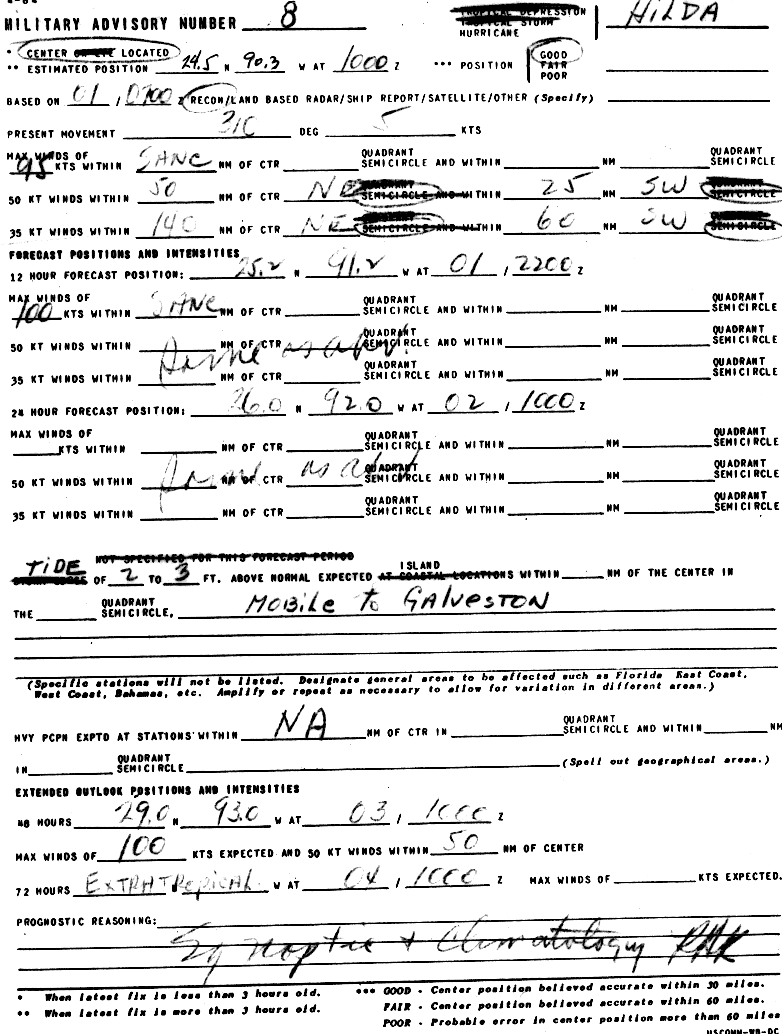 MILITARY ADVISORY NUMBER 8 HURRICANE HILDA
* CENTER LOCATED
** ESTIMATED POSITION 24.5 N 90.3 W AT 1000 Z *** POSITION GOOD FAIR POOR
BASED ON 01 , 0700 Z RECON/LAND BASED RADAR/SHIP REPORT/SATELLITE/OTHER (Specify)
PRESENT MOVEMENT 310 DEG 5 KTS
MAX WINDS OF QUADRANT QUADRANT
95 KTS WITHIN SANC NM OF CTR SEMICIRCLE AND WITHIN NM SEMICIRCLE
50 KT WINDS WITHIN 50 NM OF CTR NE SEMICIRCLE AND WITHIN 25 NM SW SEMICIRCLE
35 KT WINDS WITHIN 140 NM OF CTR NE SEMICIRCLE AND WITHIN 60 NM SW SEMICIRCLE
FORECAST POSITIONS AND INTENSITIES
12 HOUR FORECAST POSITION: 25.2 N 91.2 W AT 01 , 2200 Z
MAX WINDS OF QUADRANT QUADRANT
100 KTS WITHIN SANC NM OF CTR SEMICIRCLE AND WITHIN NM SEMICIRCLE
QUADRANT QUADRANT
50 KT WINDS WITHIN NM OF CTR SEMICIRCLE AND WITHIN NM SEMICIRCLE
QUADRANT QUADRANT
35 KT WINDS WITHIN NM OF CTR SEMICIRCLE AND WITHIN NM SEMICIRCLE
24 HOUR FORECAST POSITION: 26.0 N 92.0 W AT 02 , 1000 Z
MAX WINDS OF QUADRANT QUADRANT
KTS WITHIN NM OF CTR SEMICIRCLE AND WITHIN NM SEMICIRCLE
QUADRANT QUADRANT
50 KT WINDS WITHIN NM OF CTR SEMICIRCLE AND WITHIN NM SEMICIRCLE
QUADRANT QUADRANT
35 KT WINDS WITHIN NM OF CTR SEMICIRCLE AND WITHIN NM SEMICIRCLE
NOT SPECIFIED FOR THIS FORECAST PERIOD ISLAND
TIDE OF 2 TO 3 FT. ABOVE NORMAL EXPECTED AT COASTAL LOCATIONS WITHIN NM OF THE CENTER IN
THE QUADRANT SEMICIRCLE, MOBILE to GALVESTON
(Specific stations will not be listed. Designate general areas to be affected such as Florida East Coast,
West Coast, Bahamas, etc. Amplify or repeat as necessary to allow for variation in different areas.)
HVY PCPN EXPTD AT STATIONS WITHIN NA NM OF CTR IN QUADRANT SEMICIRCLE AND WITHIN NM
IN QUADRANT SEMICIRCLE (Spell out geographical areas.)
EXTENDED OUTLOOK POSITIONS AND INTENSITIES
48 HOURS 29.0 N 93.0 W AT 03 , 1000 Z
MAX WINDS OF 100 KTS EXPECTED AND 50 KT WINDS WITHIN 50 NM OF CENTER
72 HOURS EXTRATROPICAL W AT 04 , 1000 Z MAX WINDS OF KTS EXPECTED.
PROGNOSTIC REASONING:
Synoptic + Climatology RHK
* When latest fix is less than 3 hours old. *** GOOD - Center position believed accurate within 30 miles.
** When latest fix is more than 3 hours old. FAIR - Center position believed accurate within 60 miles.
POOR - Probable error in center position more than 60 miles
USCOMM-WB-DC